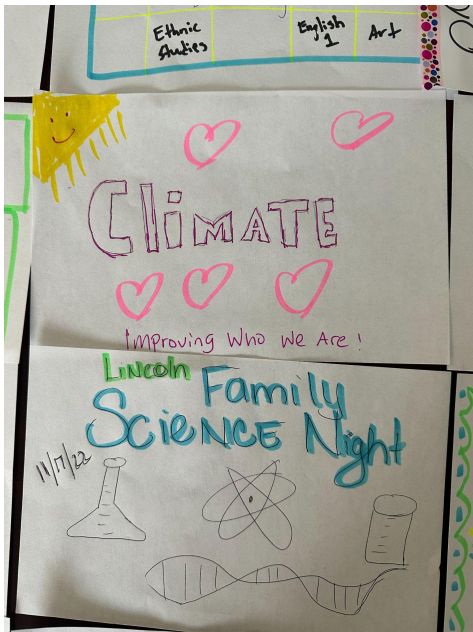 Ethnic
Studies
English
1
Art
CLiMATE
Improving Who We Are!
LINCOln
Family
SCiENCE Night
11/17/22